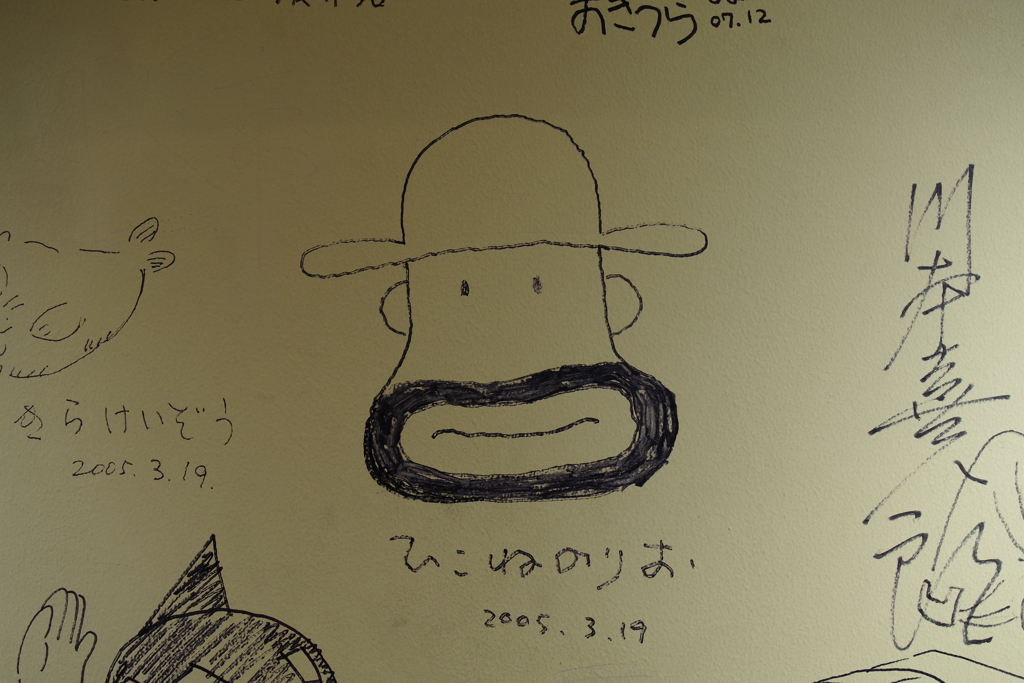 おきつら
07.12
きらけいぞう
2005. 3. 19.
ひこねのりお.
2005. 3. 19
川本喜八郎